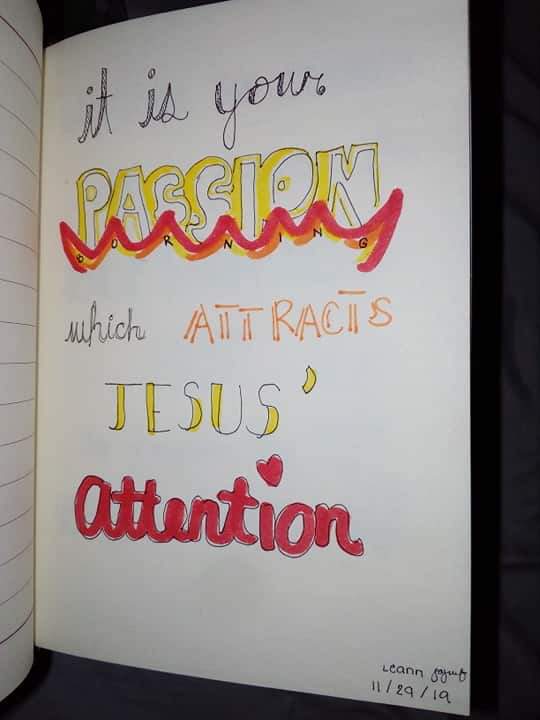 it is your
PASSION
BORNING
which ATTRACTS
JESUS'
attention
Leann
11/29/19